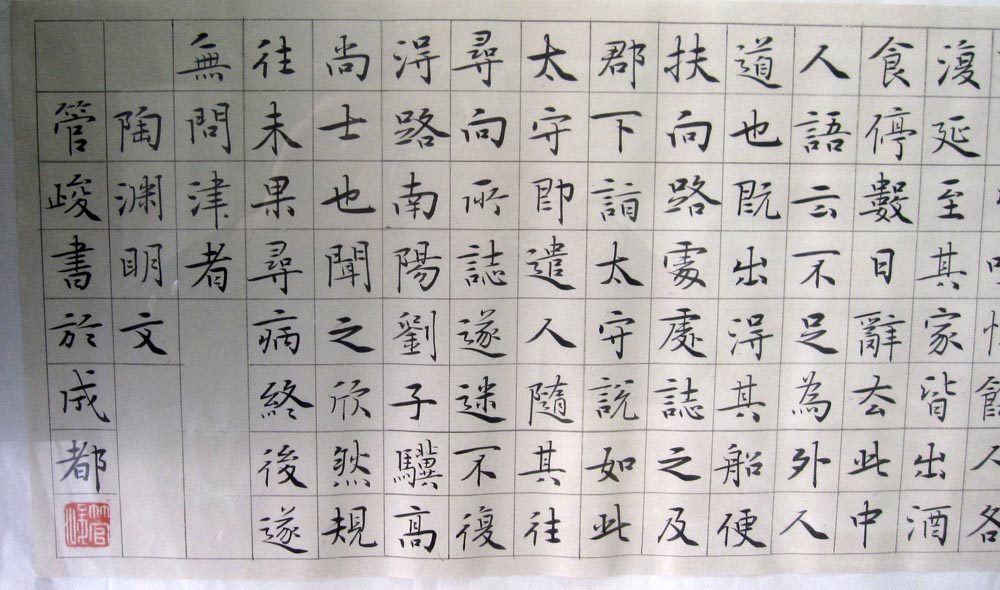 人各
復延至其家皆出酒
食停數日辭去此中
人語云不足為外人
道也既出得其船便
扶向路處處誌之及
郡下詣太守說如此
太守即遣人隨其往
尋向所誌遂迷不復
得路南陽劉子驥高
尚士也聞之欣然規
往未果尋病終後遂
無問津者
陶淵明文
管峻書於成都
管峻